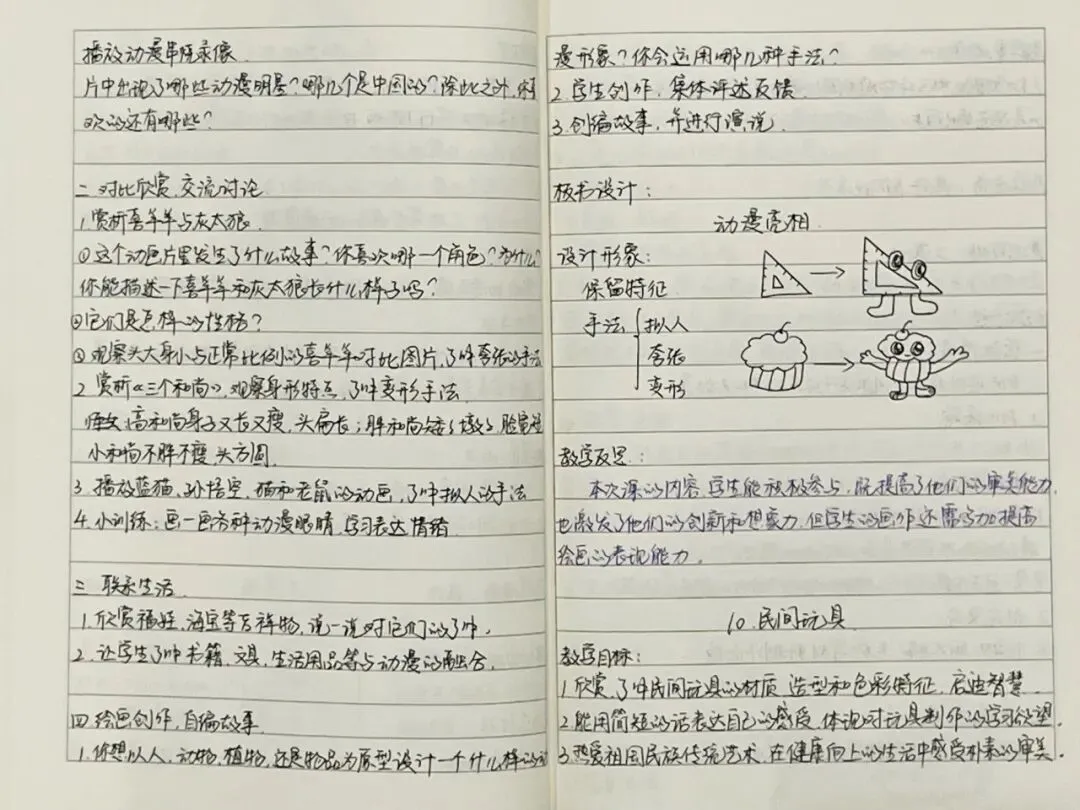 播放动漫串烧录像
片中出现了哪些动漫明星?哪几个是中国的?除此之外,你喜
欢的还有哪些?
二 对比欣赏,交流讨论
1.赏析喜羊羊与灰太狼.
①这个动画片里发生了什么故事?你喜欢哪一个角色?为什么?
你能描述一下喜羊羊和灰太狼长什么样子吗?
②它们是怎样的性格?
③观察头大身小与正常比例的喜羊羊对比图片,了解夸张的手法
2.赏析《三个和尚》,观察身形特点,了解变形手法
高和尚身子又长又瘦,头扁长;胖和尚矮了墩了,脸宽
小和尚不胖不瘦,头方圆.
3.播放蓝猫,孙悟空,猫和老鼠的动画,了解拟人的手法
4.小训练:画一画各种动漫眼睛,学习表达情绪
三 联系生活
1.欣赏福娃,海宝等吉祥物,说一说对它们的了解.
2.让学生了解书籍,文具,生活用品等与动漫的融合.
四.绘画创作,自编故事
1.你想以人,动物,植物,还是物品为原型设计一个什么样的动
漫形象?你会运用哪几种手法?
2.学生创作,集体评述反馈
3.创编故事,并进行演说.
板书设计:
动漫亮相
设计形象:
保留特征
手法 拟人
夸张
变形
教学反思:
本次课的内容,学生能积极参与,既提高了他们的审美能力,
也激发了他们的创新和想象力,但学生的画作还需努力提高
绘画的表现能力.
10.民间玩具
教学目标:
1.欣赏,了解民间玩具的材质 造型和色彩特征,启迪智慧.
2.能用简短的话表达自己的感受,体现对玩具制作的学习欲望.
3.热爱祖国民族传统艺术,在健康向上的生活中感受朴素的审美.